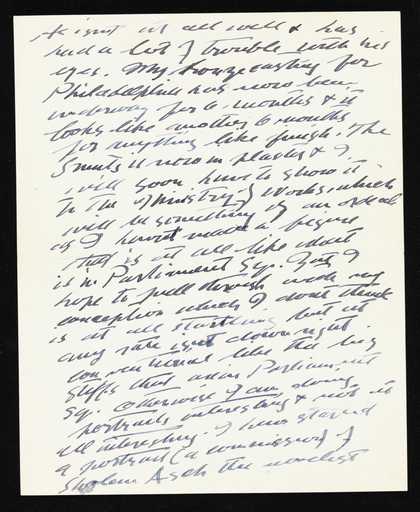 isnt at all well & has
had a lot of trouble with his
eyes. My bronze casting for
Philadelphia has now been
underway for 6 months & it
looks like another 6 months
for anything like finish. The
Smuts is now in plaster & I
will soon have to show it
to the Ministry of Works, which
will be something of an ordeal
as I havent made a figure
that is at all like what
is in Parliament Sq. But I
hope to pull through with my
conception which I dont think
is at all startling but at
any rate isnt downright
conventional like the big
stiffs that are in Parliament
Sq. Otherwise I am doing
portraits interesting & not at
all interesting. I have started
a portrait (a commission) of
Sholem Asch the novelist